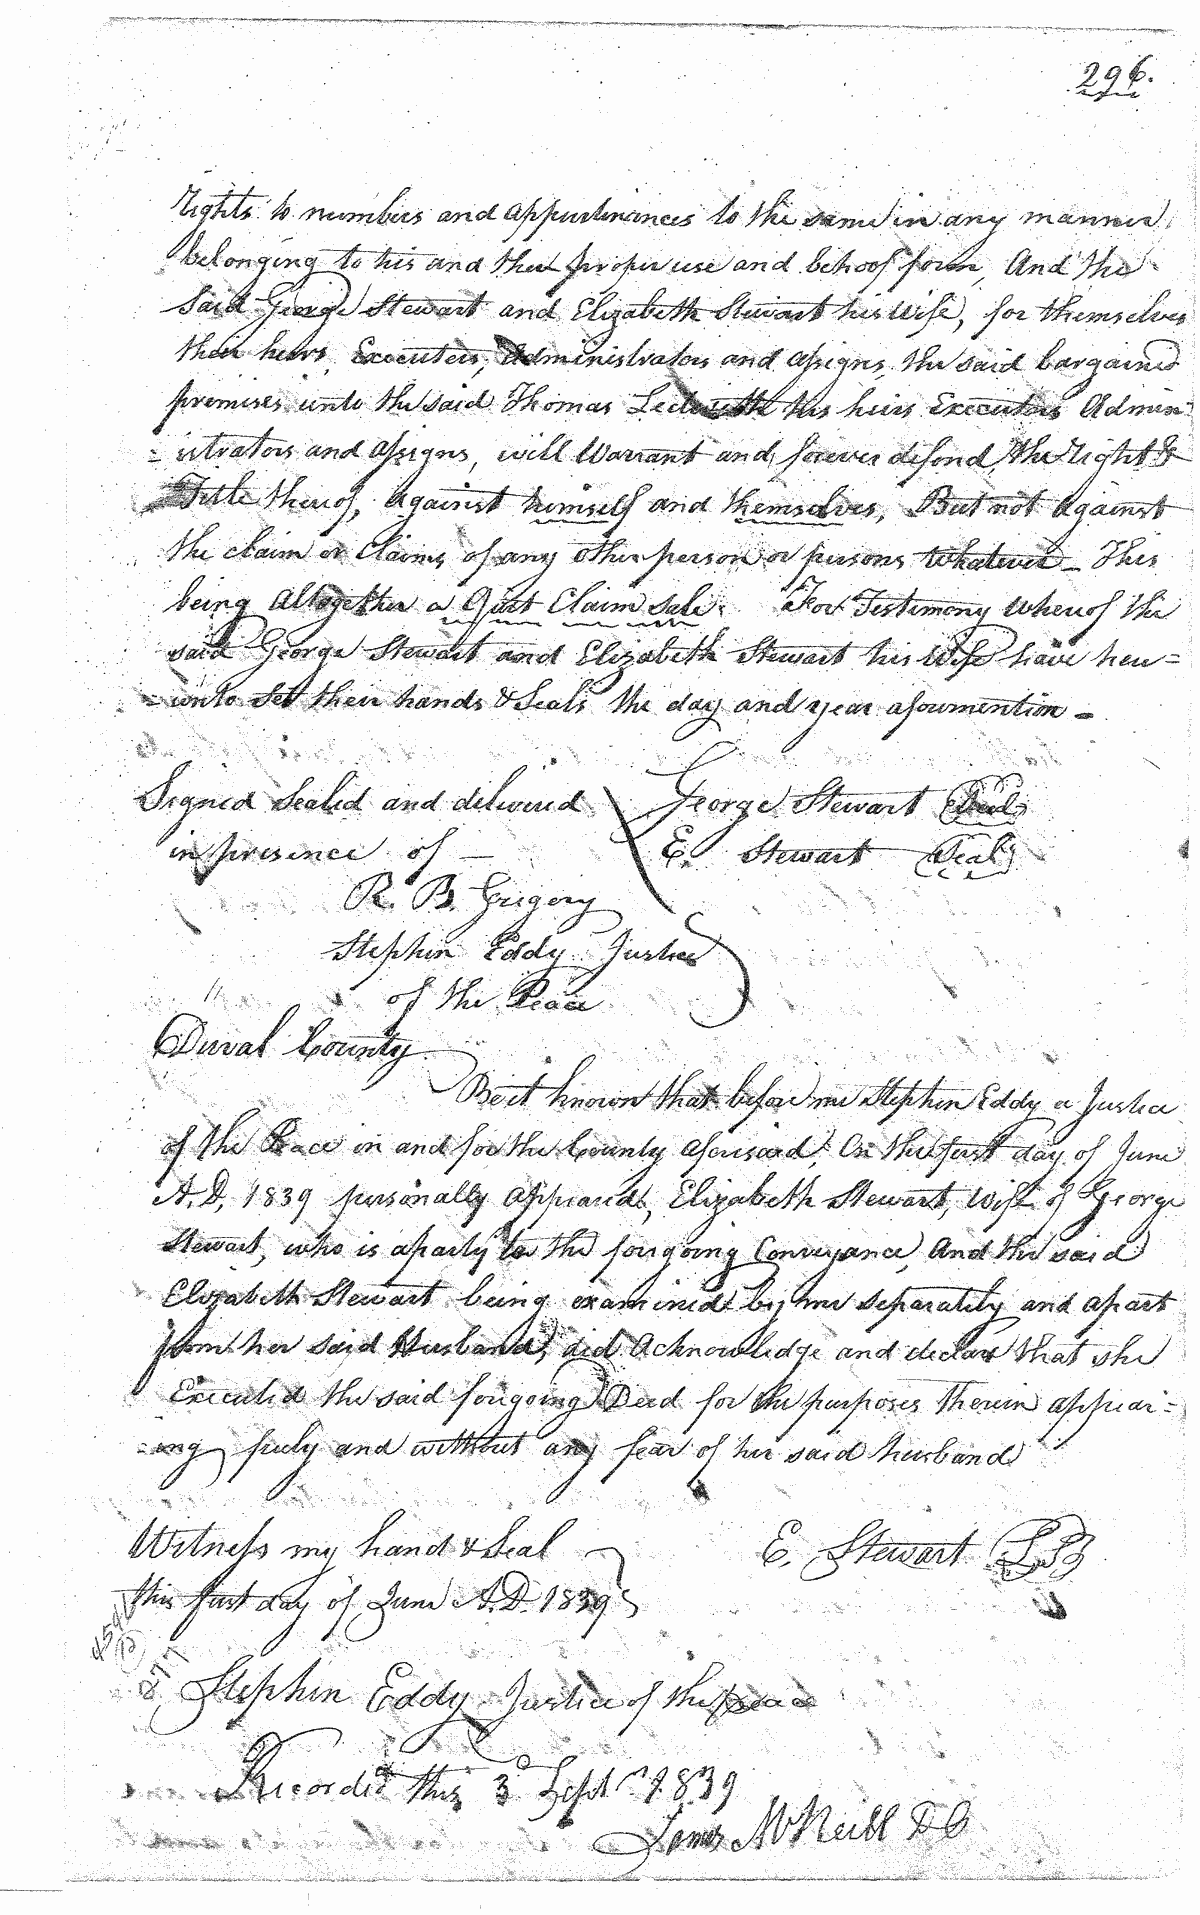 296.
rights to numbers and appurtinances to the same in any manner
belonging to his and their proper use and behoof form, And the
Said George Stewart and Elizabeth Stewart his Wife, for themselves
their heirs, Executers, Administrators and assigns, the said bargained
premises unto the said Thomas Ledwith his heirs Executors Admin=
=istrators and assigns, will Warrant and forever defend, the Right &
Title thereof, against himself and themselves, But not against
the claim or Claims of any other person or persons whatever_ This
being Altogether a Quit Claim sale. For Testimony Whereof the
said George Stewart and Elizabeth Stewart his Wife have here=
=unto Set their hands & Seals the day and year aforemention -
Signed Sealed and delivered
in presence of —
George Stewart Seal
E. Stewart Seal
R. B. Gregory
Stephen Eddy Justice
of the Peace
Duval County
Be it known that before me Stephen Eddy a Justice
of the Peace in and for the County aforesaid, On the first day of June
A.D. 1839 personally appeared, Elizabeth Stewart, Wife of George
Stewart, who is a party to the foregoing Conveyance, And the said
Elizabeth Stewart being examined by me separately and apart
from her said Husband, did Acknowledge and declare that she
Executed the said foregoing Deed for the purposes therein appear=
=ing freely and without any fear of her said husband
Witness my hand & Seal
this first day of June A.D. 1839
E. Stewart LS
277
Stephen Eddy Justice of the peace
Recorded this 3d Septr 1839
James McNeill DC